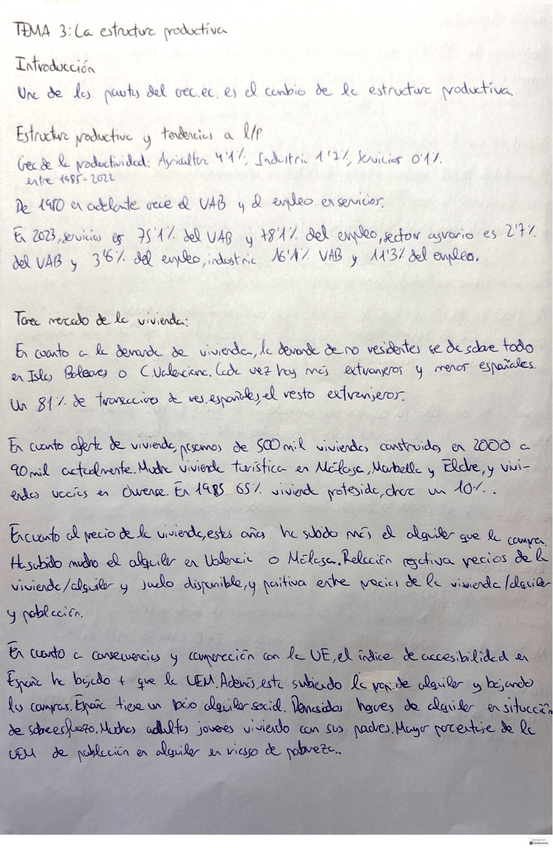 TEMA 3: La estructura productiva
Introducción
Una de las pautas del crec. ec. es el cambio de la estructura productiva.
Estructura productiva y tendencias a l/p
Crec de la productividad: Agricultura 4'1%, Industria 1'7%, Servicios 0'1%.
entre 1985-2022
De 1980 en adelante crece el VAB y el empleo en servicios.
En 2023, servicios es 75'1% del VAB y 78'1% del empleo, sector agrario es 2'7%
del VAB y 3'6% del empleo, industria 16'1% VAB y 11'3% del empleo.
Tarea mercado de la vivienda:
En cuanto a la demanda de vivienda, la demanda de no residentes se da sobre todo
en Islas Baleares o C. Valenciana. Cada vez hay más extranjeros y menos españoles.
Un 81% de transacciones de res. españoles, el resto extranjeros.
En cuanto oferta de vivienda, pasamos de 500 mil viviendas construidas en 2000 a
90 mil actualmente. Mucha vivienda turística en Málaga, Marbella y Elche, y vivi-
endas vacías en Ourense. En 1985 65% vivienda protegida, ahora un 10%.
En cuanto al precio de la vivienda, estos años ha subido más el alquiler que la compra.
Ha subido mucho el alquiler en Valencia o Málaga. Relación negativa precios de la
vivienda/alquiler y suelo disponible, y positiva entre precios de la vivienda/alquiler
y población.
En cuanto a consecuencias y comparación con la UE, el índice de accesibilidad en
España ha bajado + que la UEM. Además, está subiendo la prop. de alquiler y bajando
las compras. España tiene un bajo alquiler social. Demasiados hogares de alquiler en situación
de sobreesfuerzo. Muchos adultos jóvenes viviendo con sus padres. Mayor porcentaje de la
UEM de población en alquiler en riesgo de pobreza.